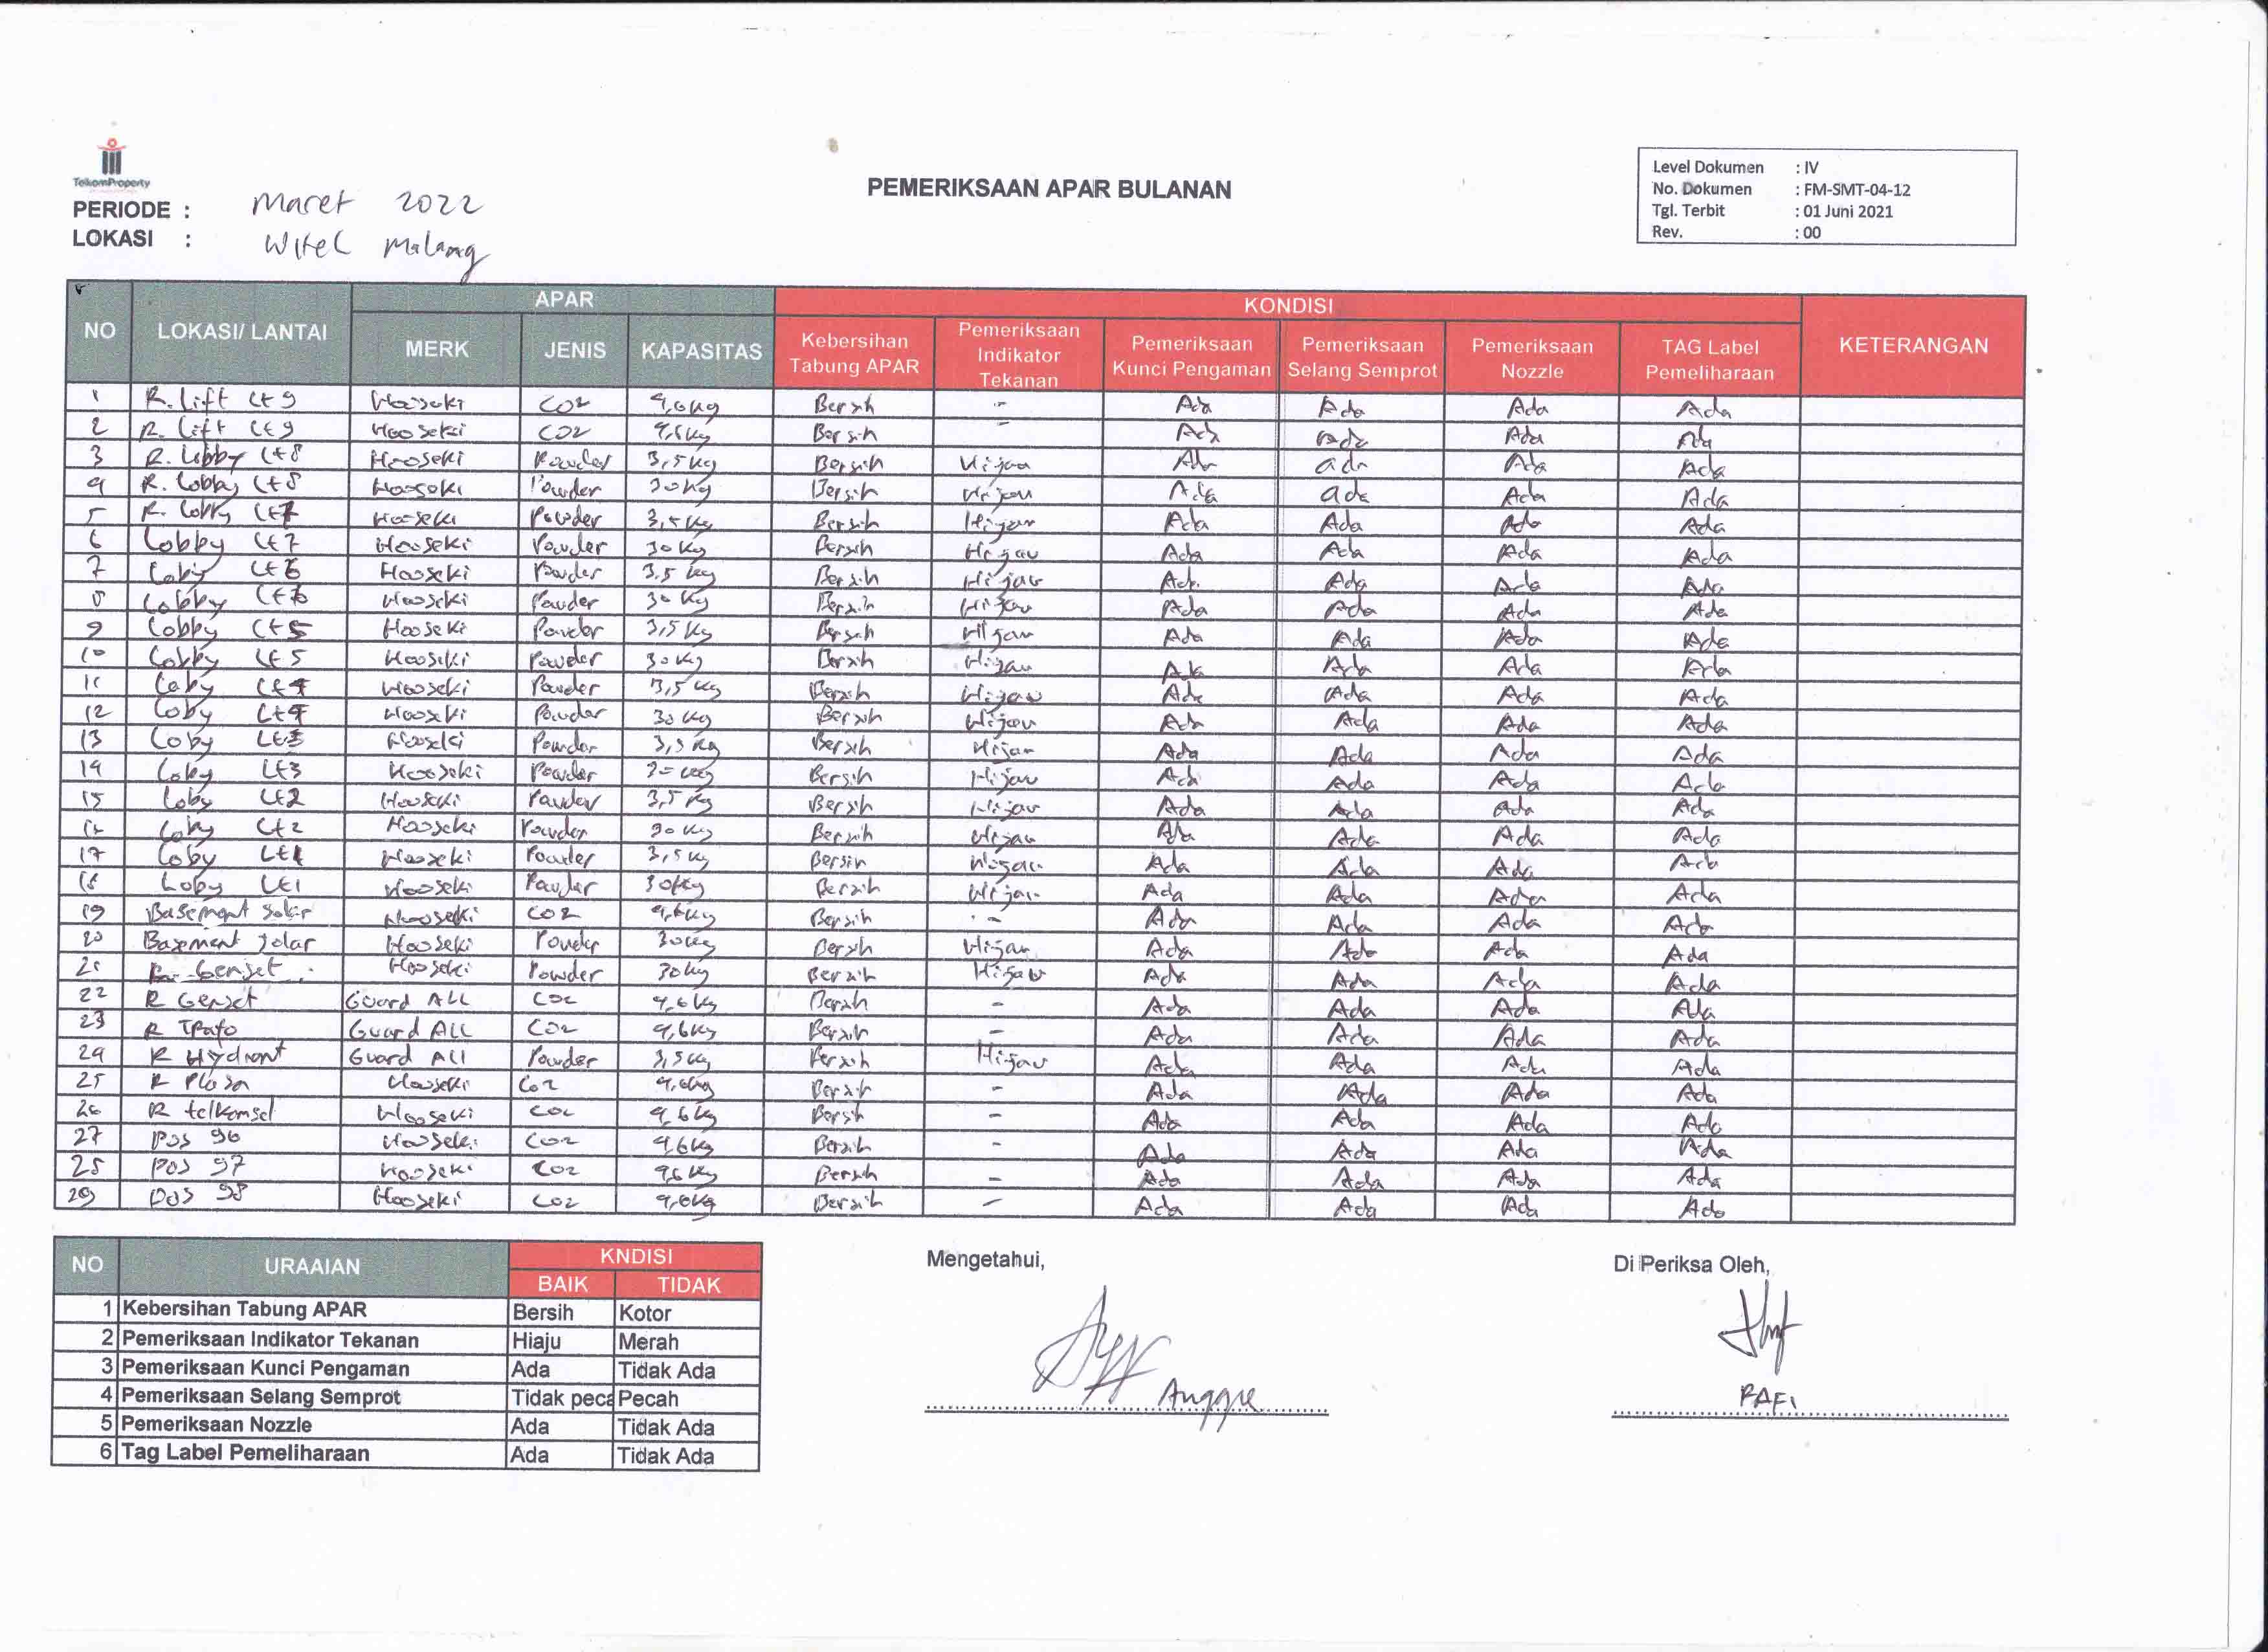 TelkomProperty
PERIODE : Maret 2022
LOKASI : Witel Malang
PEMERIKSAAN APAR BULANAN
Level Dokumen : IV
No. Dokumen : FM-SMT-04-12
Tgl. Terbit : 01 Juni 2021
Rev. : 00
NO LOKASI/ LANTAI APAR KONDISI KETERANGAN
MERK JENIS KAPASITAS Kebersihan Tabung APAR Pemeriksaan Indikator Tekanan Pemeriksaan Kunci Pengaman Pemeriksaan Selang Semprot Pemeriksaan Nozzle TAG Label Pemeliharaan
1 R. Lift Lt 9 Hooseki CO2 4,6kg Bersih - Ada Ada Ada Ada
2 R. Lift Lt 9 Hooseki CO2 4,6kg Bersih - Ada Ada Ada Ada
3 R. Lobby Lt 8 Hooseki Powder 3,5kg Bersih Hijau Ada ada Ada Ada
4 R. Lobby Lt 8 Hooseki Powder 30kg Bersih Hijau Ada ada Ada Ada
5 R. Lobby Lt 7 Hooseki Powder 3,5kg Bersih Hijau Ada Ada Ada Ada
6 Lobby Lt 7 Hooseki Powder 30kg Bersih Hijau Ada Ada Ada Ada
7 Loby Lt 6 Hooseki Powder 3.5 kg Bersih Hijau Ada Ada Ada Ada
8 Lobby Lt 6 Hooseki Powder 30 kg Bersih Hijau Ada Ada Ada Ada
9 Lobby Lt 5 Hooseki Powder 3,5kg Bersih Hijau Ada Ada Ada Ada
10 Lobby Lt 5 Hooseki Powder 30kg Bersih Hijau Ada Ada Ada Ada
11 Loby Lt 4 Hooseki Powder 3,5 kg Bersih Hijau Ada Ada Ada Ada
12 Loby Lt 4 Hooseki Powder 30 kg Bersih Hijau Ada Ada Ada Ada
13 Loby Lt 3 Hooseki Powder 3,5 kg Bersih Hijau Ada Ada Ada Ada
14 Loby Lt 3 Hooseki Powder 30 kg Bersih Hijau Ada Ada Ada Ada
15 Loby Lt 2 Hooseki Powder 3,5 kg Bersih Hijau Ada Ada Ada Ada
16 Loby Lt 2 Hooseki Powder 30 kg Bersih Hijau Ada Ada Ada Ada
17 Loby Lt 1 Hooseki Powder 3,5kg Bersih Hijau Ada Ada Ada Ada
18 Loby Lt 1 Hooseki Powder 30kg Bersih Hijau Ada Ada Ada Ada
19 Basement Solar Hooseki CO2 4,6kg Bersih - Ada Ada Ada Ada
20 Basement Solar Hooseki Powder 30kg Bersih Hijau Ada Ada Ada Ada
21 R. Genset Hooseki Powder 30kg Bersih Hijau Ada Ada Ada Ada
22 R Genset Guard ALL CO2 4,6 kg Bersih - Ada Ada Ada Ada
23 R Trafo Guard ALL CO2 4,6kg Bersih - Ada Ada Ada Ada
24 R Hydrant Guard All Powder 3,5kg Bersih Hijau Ada Ada Ada Ada
25 R Plasa Hooseki Co2 4,6kg Bersih - Ada Ada Ada Ada
26 R telkomsel Hooseki CO2 4,6kg Bersih - Ada Ada Ada Ada
27 Pos 96 Hooseki CO2 4,6kg Bersih - Ada Ada Ada Ada
28 Pos 97 Hooseki CO2 4,6kg Bersih - Ada Ada Ada Ada
29 Pos 98 Hooseki CO2 4,6kg Bersih - Ada Ada Ada Ada
NO URAAIAN KNDISI
BAIK TIDAK
1 Kebersihan Tabung APAR Bersih Kotor
2 Pemeriksaan Indikator Tekanan Hiaju Merah
3 Pemeriksaan Kunci Pengaman Ada Tidak Ada
4 Pemeriksaan Selang Semprot Tidak peca Pecah
5 Pemeriksaan Nozzle Ada Tidak Ada
6 Tag Label Pemeliharaan Ada Tidak Ada
Mengetahui,
Anggre
Di Periksa Oleh,
RAFI